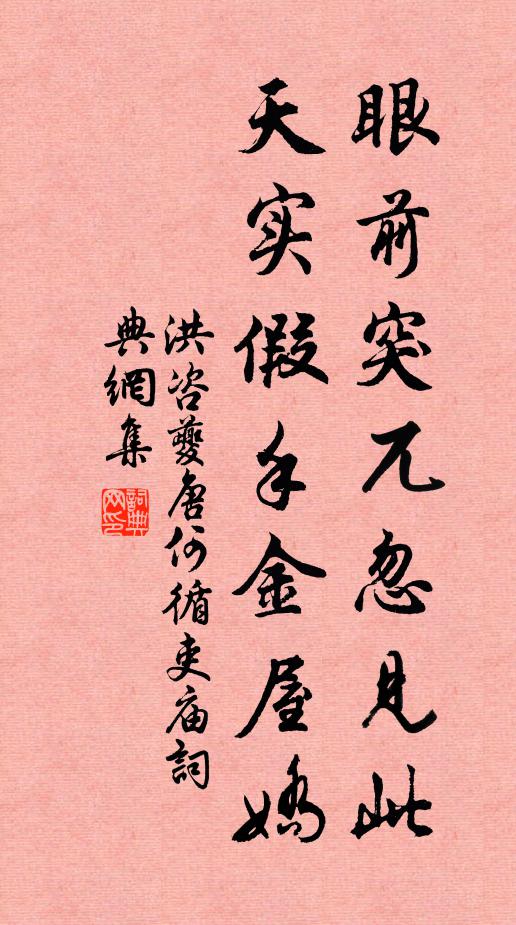 眼前突兀忽见此
天实假手金屋娇
洪咨夔唐何循吏庙詞
典網集
詞典網印